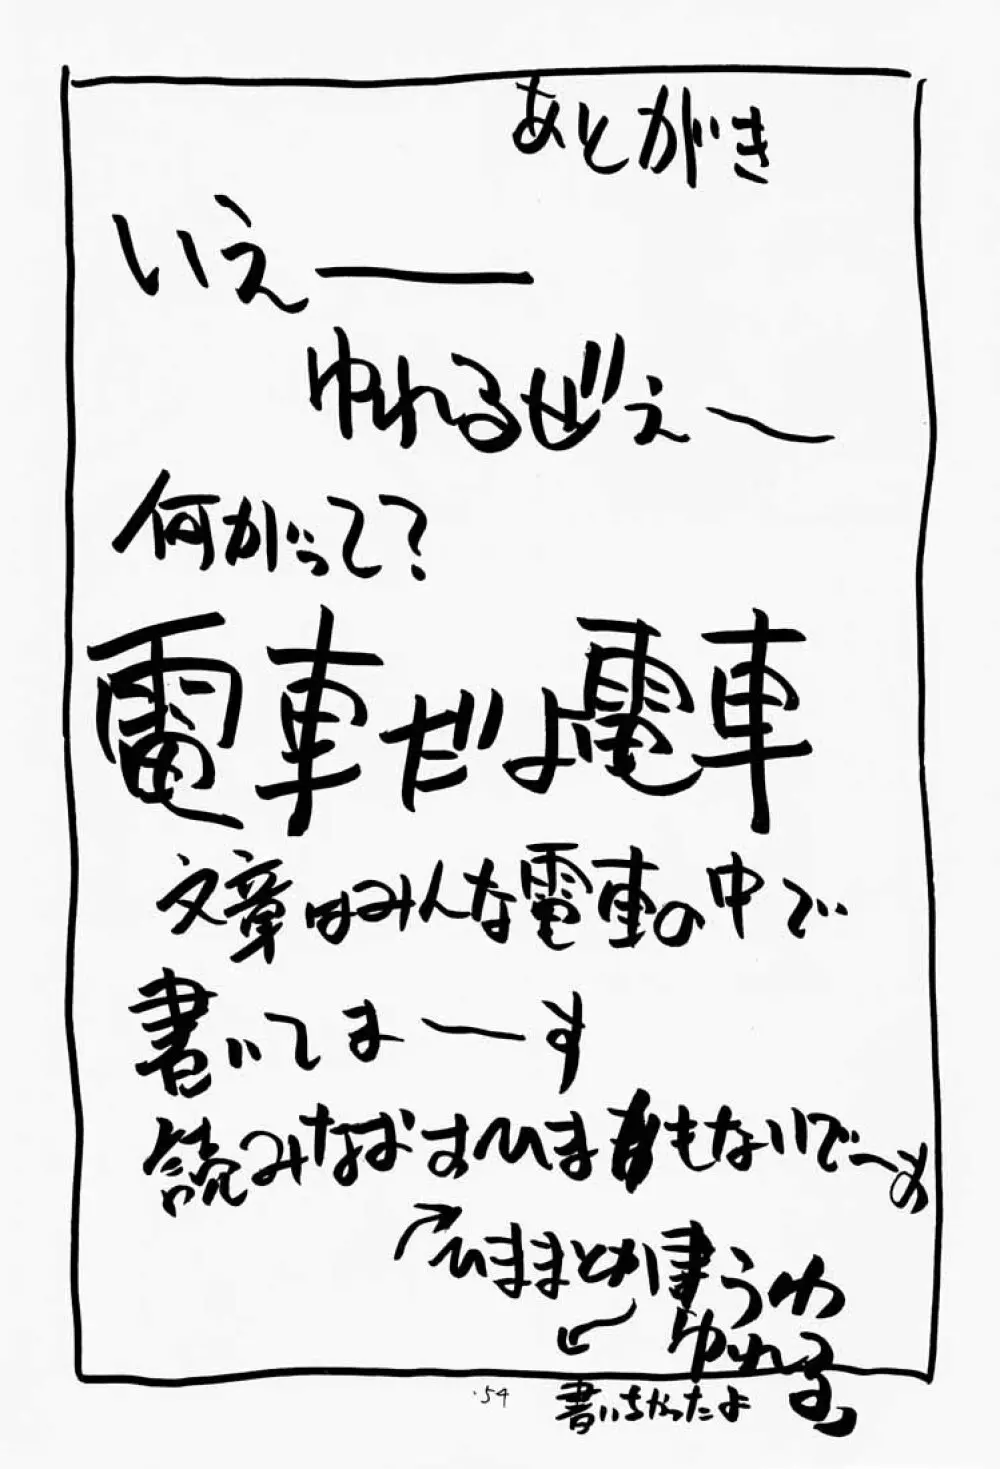 あとがき
いえ――
ゆれるぜえ〜
何がって?
電車だよ電車
文章はみんな電車の中で
書いてま〜す
読みなおすひまもないで〜す
↗ひままとか書
うわ
ゆれる
↙
書いちゃったよ
54